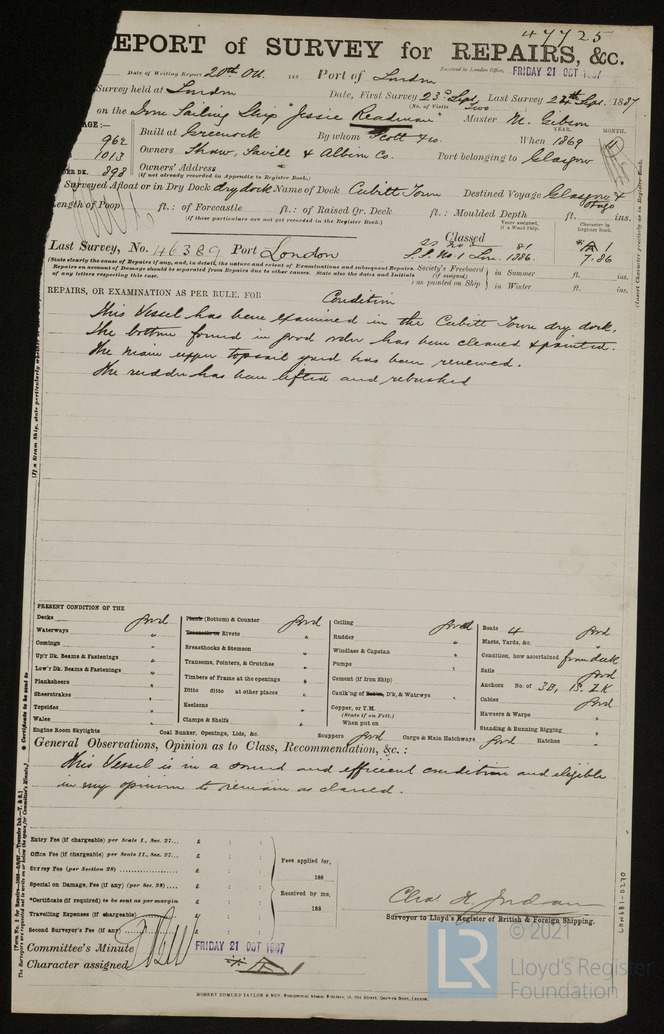 47725
EPORT of SURVEY for REPAIRS, &c.
Date of Writing Report 20th Oct. 188 Port of London Received in London Office, FRIDAY 21 OCT 1887
Survey held at London Date, First Survey 23rd Sept. Last Survey 28th Sept. 1887
(No. of Visits Two)
on the Iron Sailing Ship "Jessie Readman" Master M. Gibson
AGE:—
962 Built at Greenock By whom Scott & Co. When 1869
YEAR. MONTH.
1013 Owners Shaw, Savill & Albion Co. Port belonging to Glasgow
ER DK. 898 Owners' Address
(if not already recorded in Appendix to Register Book.)
Surveyed Afloat or in Dry Dock dry dock Name of Dock Cubitt Town Destined Voyage Glasgow & Otago
ength of Poop ft.: of Forecastle ft.: of Raised Qr. Deck ft.: Moulded Depth ft. ins.
(if these particulars are not yet recorded in the Register Book.)
Classed
Years assigned, if a Wood Ship.
Character in Register Book.
Last Survey, No. 46389 Port London
S.S. No. 1 Lon. 1886. 7,86
(State clearly the cause of Repairs if any, and, in detail, the nature and extent of Examinations and subsequent Repairs.
Repairs on account of Damage should be separated from Repairs due to other causes. State also the dates and Initials
of any letters respecting this case.
Society's Freeboard (if assigned) as painted on Ship in Summer ft. ins.
in Winter ft. ins.
REPAIRS, OR EXAMINATION AS PER RULE, FOR Condition
This Vessel has been examined in the Cubitt Town dry dock.
The bottom found in good order has been cleaned & painted.
The main upper topsail yard has been renewed.
The rudder has been lifted and rebushed
PRESENT CONDITION OF THE
Decks good
Waterways "
Comings "
Up'r Dk. Beams & Fastenings "
Low'r Dk. Beams & Fastenings "
Planksheers "
Sheerstrakes "
Topsides "
Wales "
Engine Room Skylights
Plank (Bottom) & Counter good
Treenails or Rivets "
Breasthooks & Stemson "
Transoms, Pointers, & Crutches "
Timbers of Frame at the openings "
Ditto ditto at other places "
Keelsons "
Clamps & Shelfs "
Coal Bunker, Openings, Lids, &c.
Ceiling good
Rudder "
Windlass & Capstan "
Pumps "
Cement (if Iron Ship) "
Caulk'ng of Bottom, D'k, & Watrwys "
Copper, or Y.M.
(State if on Felt.)
When put on
Scuppers good Cargo & Main Hatchways good
Boats 4 good
Masts, Yards, &c. "
Condition, how ascertained from deck
Sails good
Anchors No. of 3B, 1S. 2K
Cables good
Hawsers & Warps "
Standing & Running Rigging "
Hatches "
General Observations, Opinion as to Class, Recommendation, &c.:
This Vessel is in a sound and efficient condition and eligible
in my opinion to remain as classed.
Entry Fee (if chargeable) per Scale I., Sec. 27... £ : :
Office Fee (if chargeable) per Scale II., Sec. 27... £ : :
Survey Fee (per Section 28) £ : :
Special on Damage, Fee (if any) (per Sec. 28) £ : :
*Certificate (if required) to be sent as per margin £ : :
Travelling Expenses (if chargeable) £ : :
Second Surveyor's Fee (if any) £ : :
Fees applied for,
188
Received by me,
188
Surveyor to Lloyd's Register of British & Foreign Shipping.
Committee's Minute FRIDAY 21 OCT 1887
Character assigned
ROBERT EDMUND TAYLOR & SON, London.
LON681-0270
© 2021
LR
Lloyd's Register
Foundation